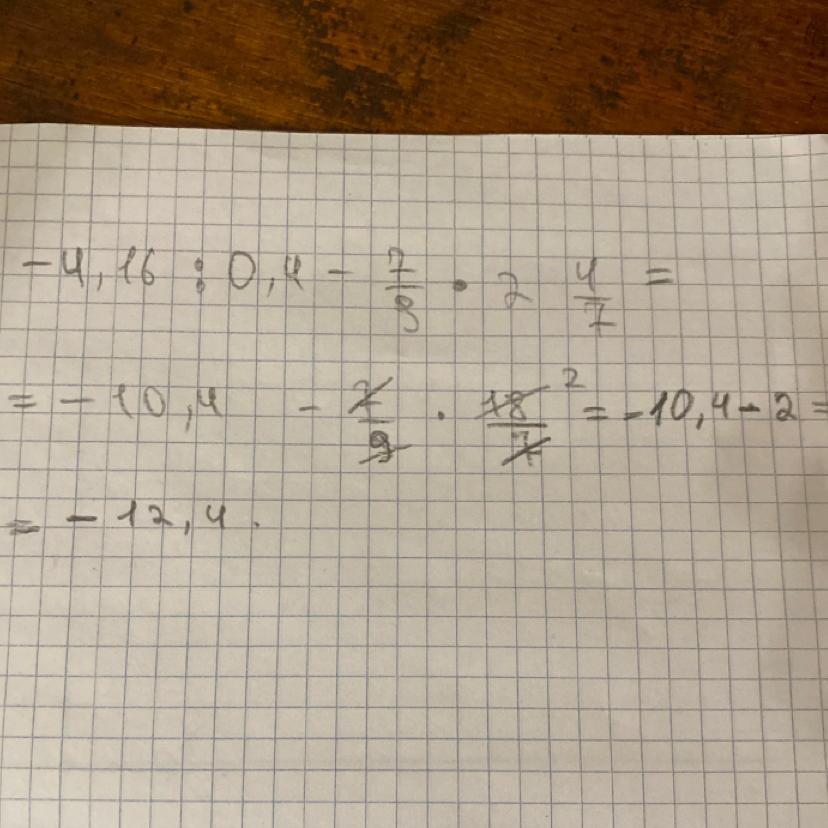 -4,16 : 0,4 - 7/9 · 2 4/7 =
= -10,4 - 7/9 · 18/7 2 = -10,4 - 2 =
= -12,4.